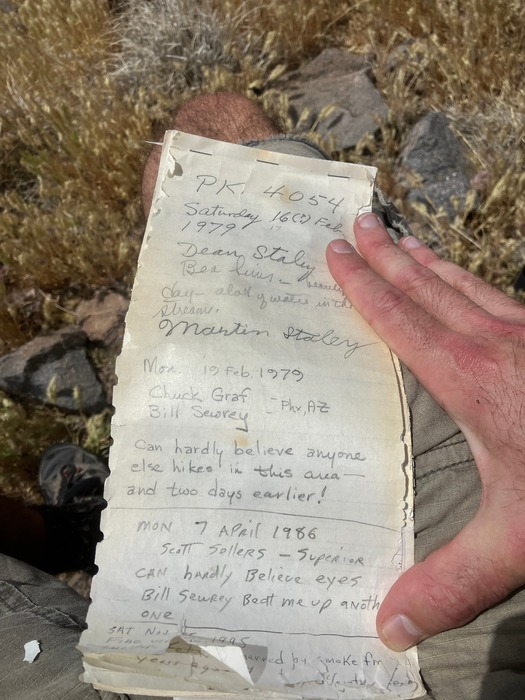 PK. 4054
Saturday 16(?) Feb.
1979 17
Dean Staley
day - a lot of water in the
stream.
Martin Staley
Mon. 19 Feb, 1979
Chuck Graf
Bill Sewrey - Phx, AZ
Can hardly believe anyone
else hikes in this area—
and two days earlier!
MON 7 April 1986
Scott Sellers - Superior
CAN hardly Believe eyes
Bill Sewrey Beat me up anoth
one
SAT Nov 1995
years ago by smoke fm